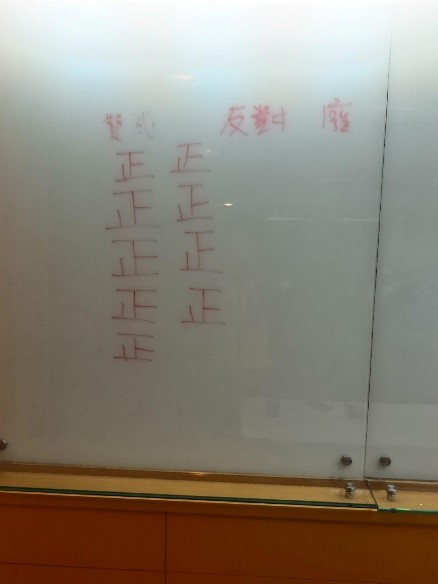 贊成 反對 廢
正 正
正 正
正 正
正 正
正